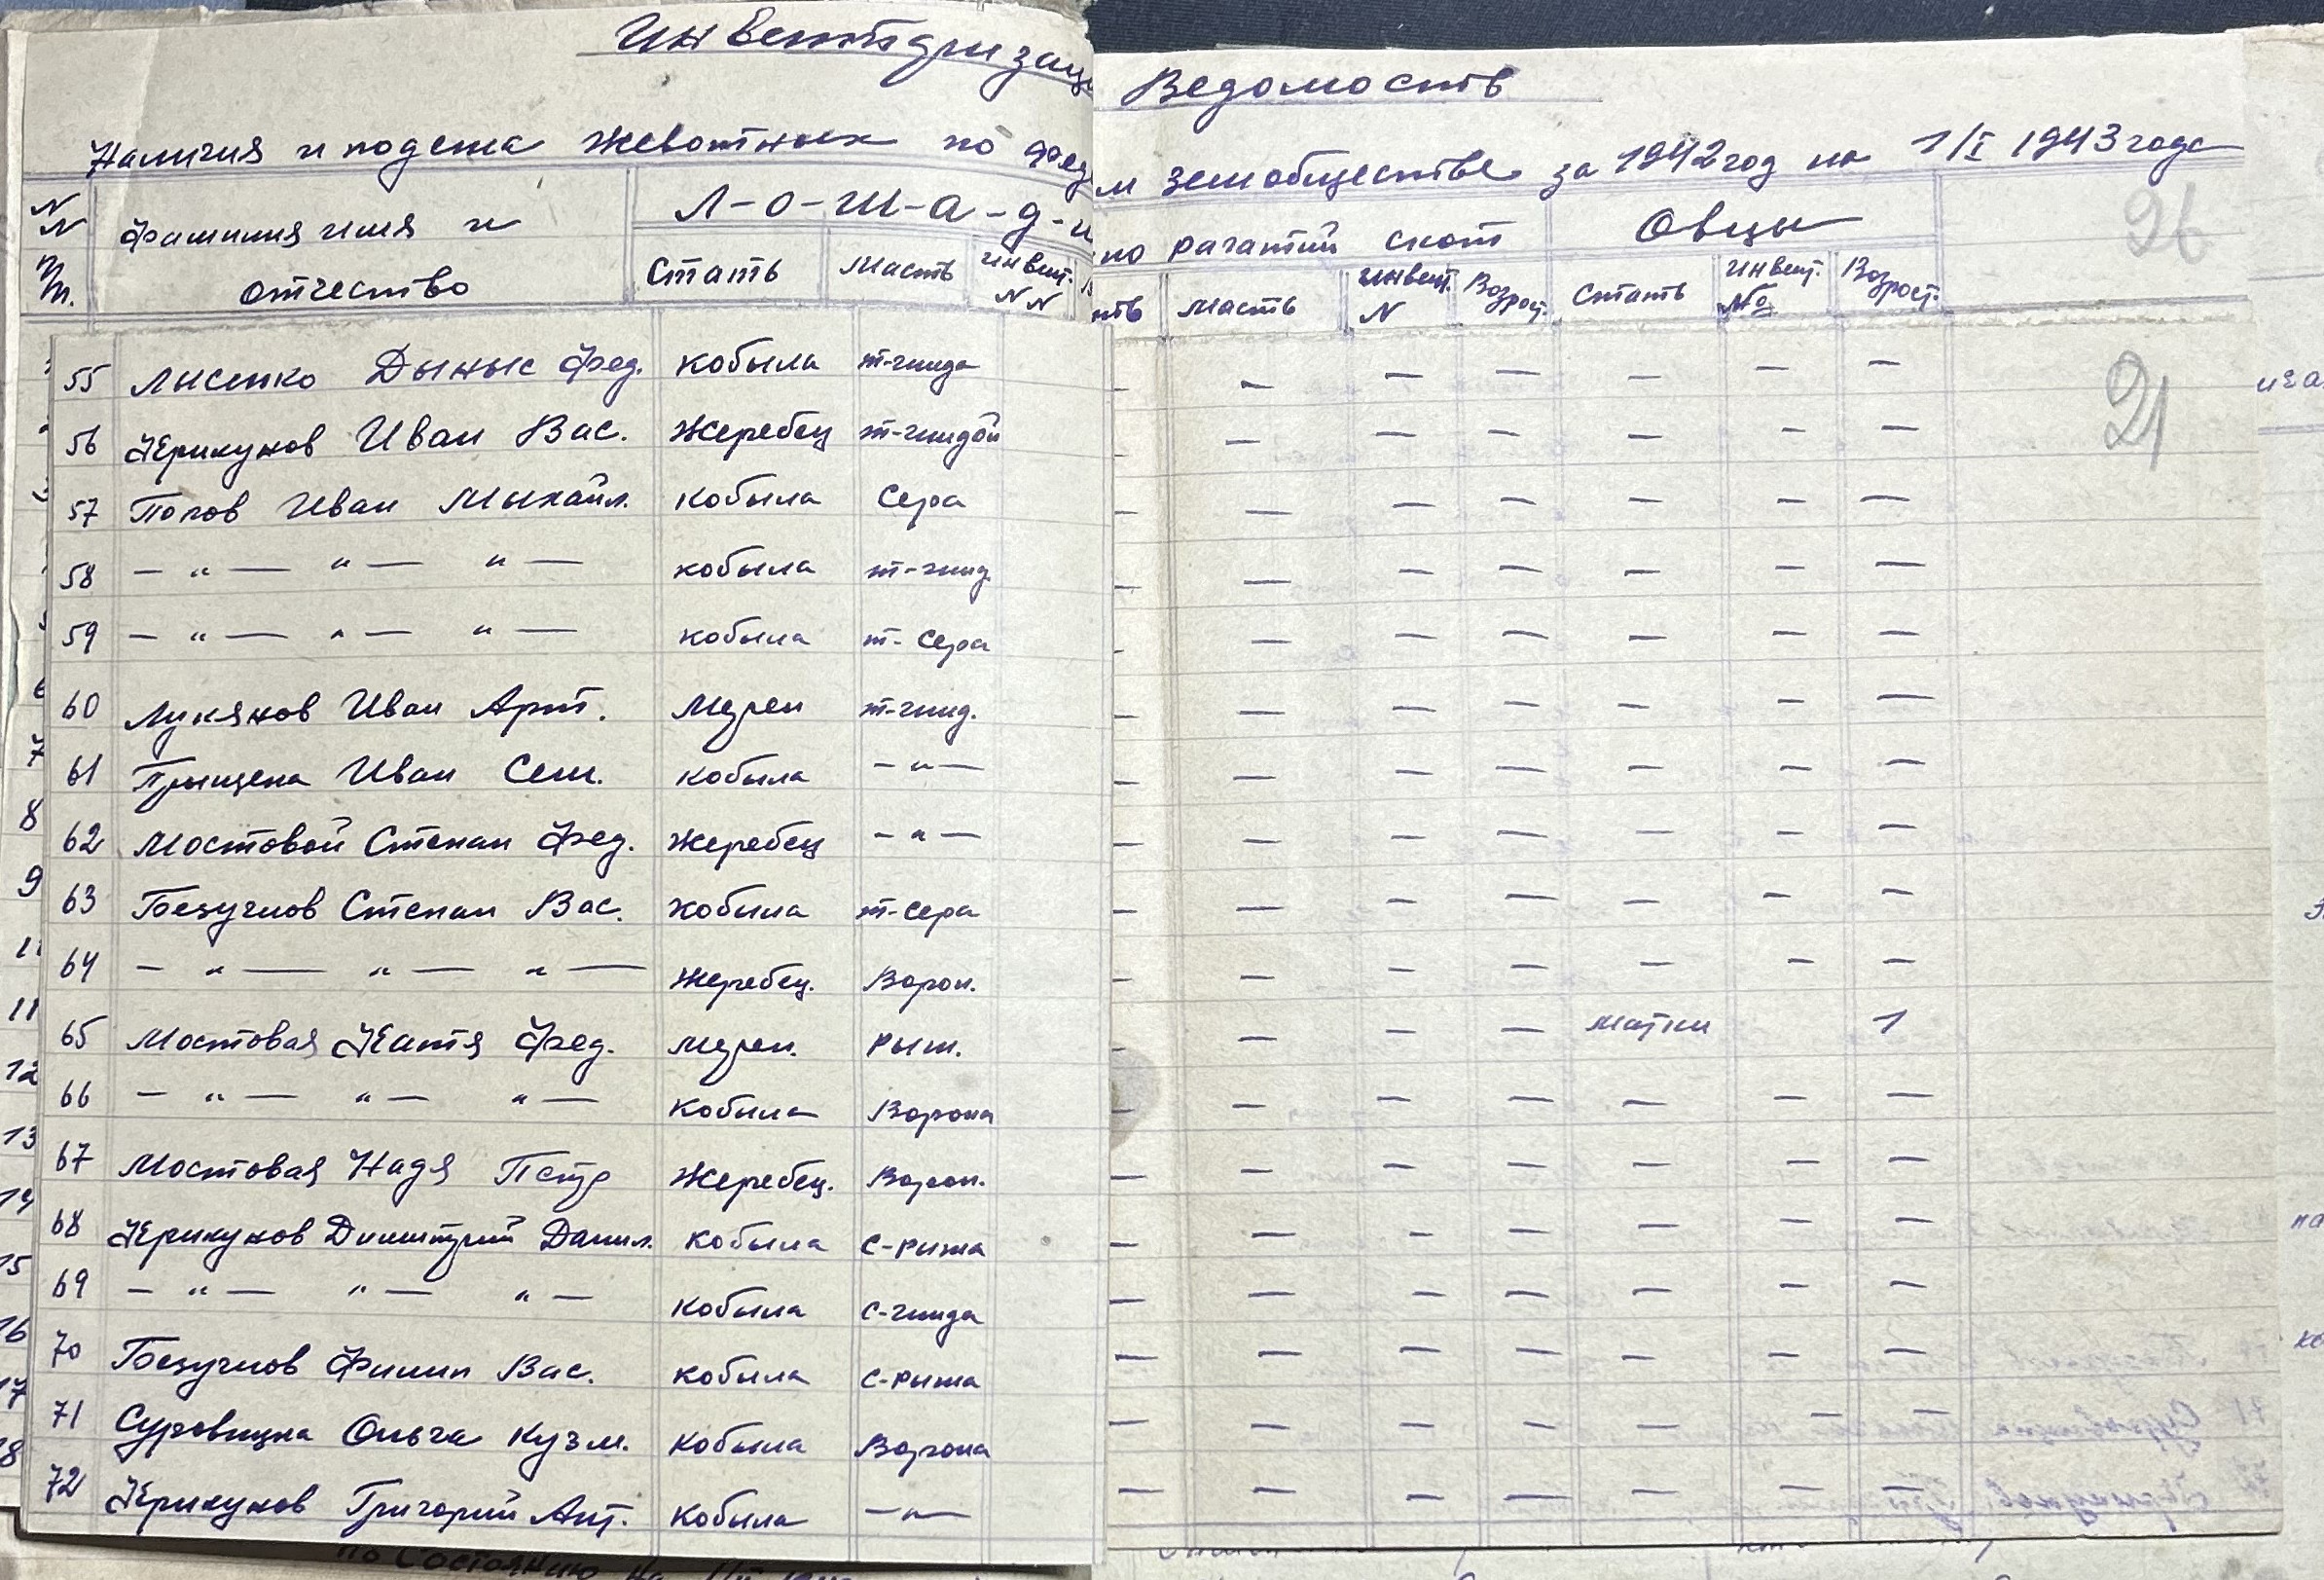 Инвентаризаци Ведомость
Наличия и подежа жевотных по Фед м земобществе за 1942 год на 1/I 1943 года
26
N N п/п. Фамилия имя и отчество Л-о-ш-а-д-и но рагатий скот Овцы
Стать Масть Инвент. N N ть Масть Инвент. N Возрост. Стать Инвент. № Возрост.
21
55 Лисенко Дыныс Фед. кобыла т-гнида — — — — — — —
56 Керикунов Иван Вас. Жеребец т-гнидой — — — — — — —
57 Попов Иван Мыхайл. кобыла Сера — — — — — — —
58 — " — " — " — кобыла т-гнид. — — — — — — —
59 — " — " — " — кобыла т-сера — — — — — — —
60 Лукянов Иван Арт. Мерен т-гнид. — — — — — — —
61 Грыщена Иван Сем. кобыла — " — — — — — — — —
62 Мостовой Степан Фед. Жеребец — " — — — — — — — —
63 Безуглов Степан Вас. кобыла т-сера — — — — — — —
64 — " — " — " — Жеребец. Ворон. — — — — — — —
65 Мостовая Катя Фед. Мерен. Рыж. — — — — матки 1
66 — " — " — " — кобыла Ворона — — — — — — —
67 Мостовая Надя Петр Жеребец. Ворон. — — — — — — —
68 Керикунов Димитрий Данил. кобыла с-рижа — — — — — — —
69 — " — " — " — кобыла с-гнида — — — — — — —
70 Безуглов Филип Вас. кобыла с-рижа — — — — — — —
71 Суровицна Ольга Кузм. кобыла Ворона — — — — — — —
72 Керикунов Григорий Ант. кобыла — " — — — — — — — —
по состоянию на